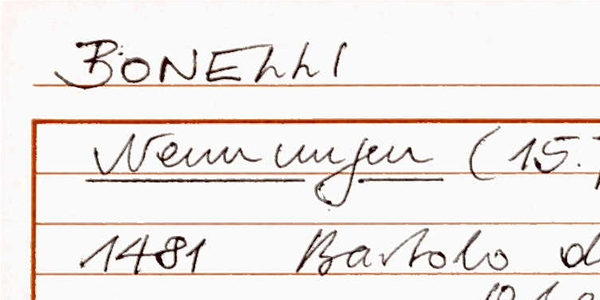 BONELLI
Nennungen (15.
1481 Bartolo d